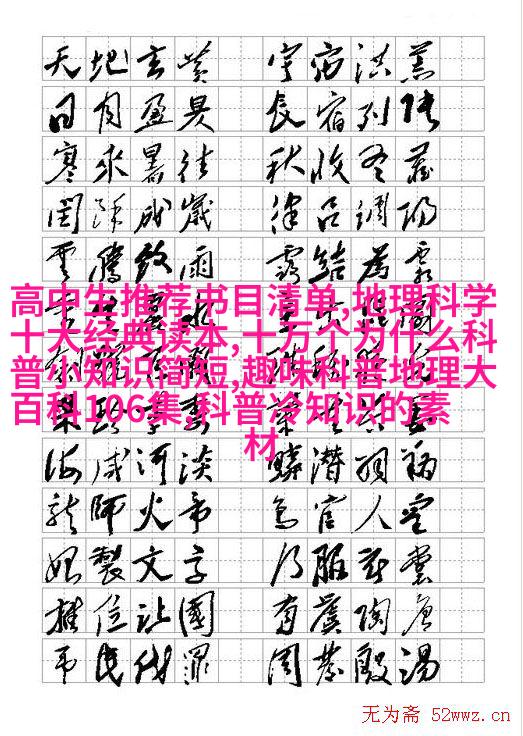 天地玄黃 宇宙洪荒
日月盈昃 辰宿列張
寒來暑往 秋收冬藏
閏餘成歲 律呂調陽
雲騰致雨 露結為霜
高中生推荐书目清单,地理科学
十大经典读本,十万个为什么科
普小知识简短,趣味科普地理大
百科106集,科普冷知识的素
材
海咸河淡 鱗潛羽翔
龍師火帝 鳥官人皇
始製文字 乃服衣裳
推位讓國 有虞陶唐
吊民伐罪 周發殷湯
无为斋 52wwz.cn